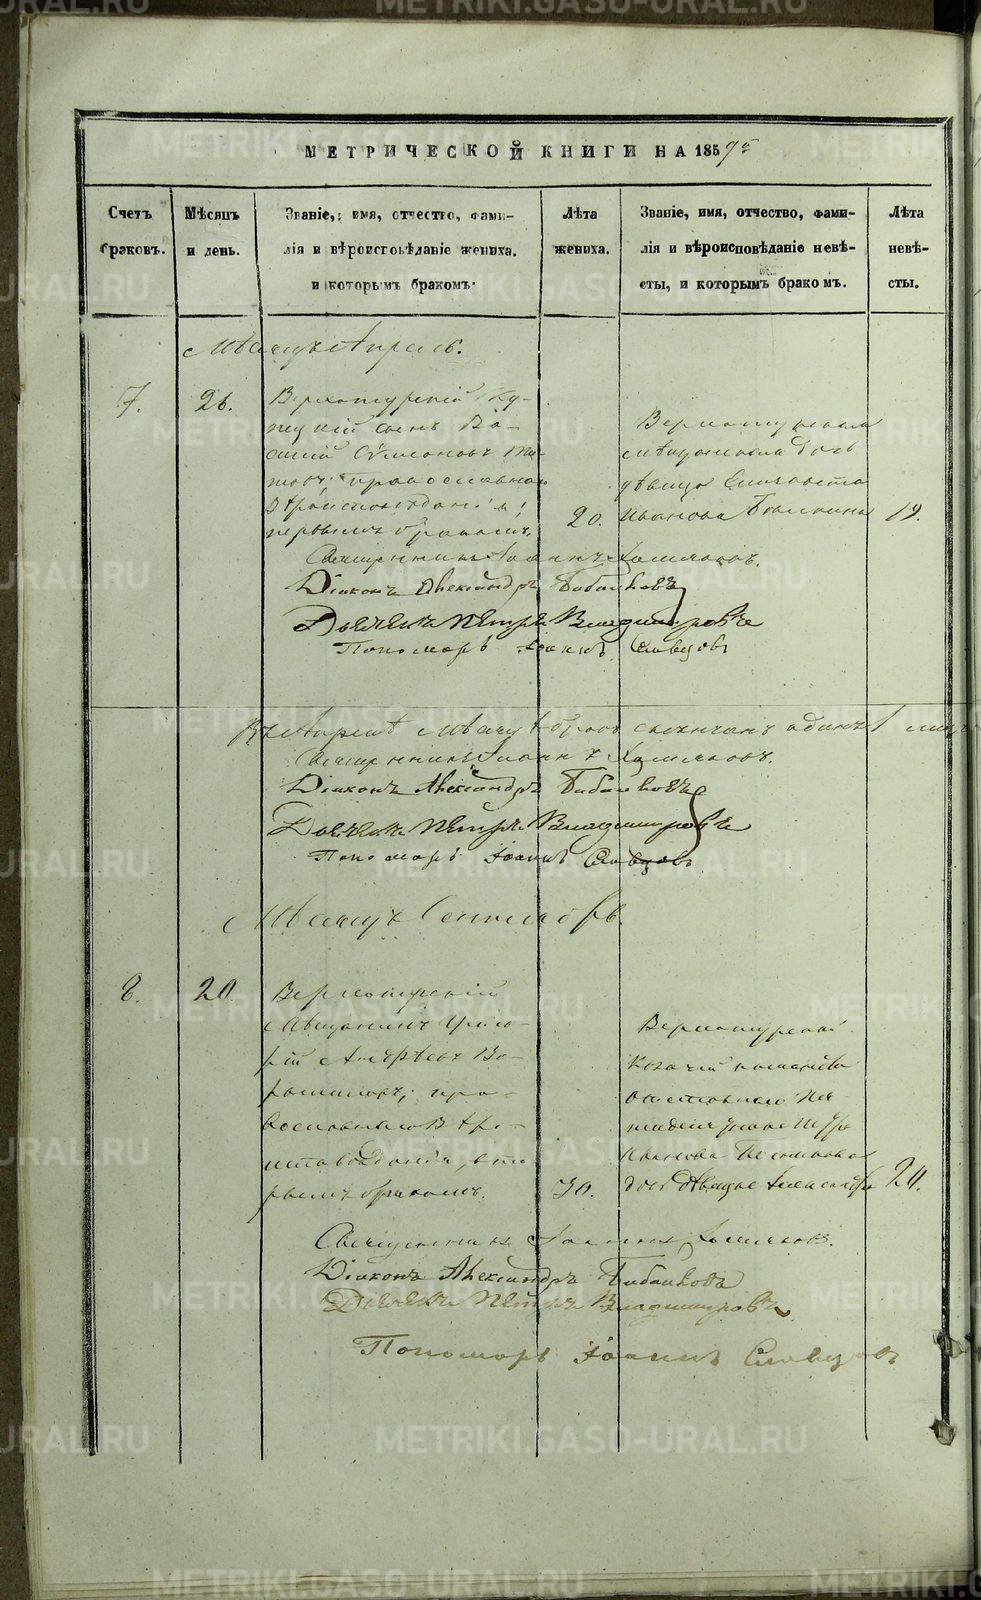 МЕТРИЧЕСКОЙ КНИГИ НА 1859й
Счетъ браковъ.
Мѣсяцъ и день.
Званіе, имя, отчество, фами-
лія и вѣроисповѣданіе жениха.
и которымъ бракомъ.
Лѣта жениха.
Званіе, имя, отчество, фами-
лія и вѣроисповѣданіе невѣ-
сты, и которымъ бракомъ.
Лѣта невѣ-
сты.
Мѣсяцъ Апрель.
7.
26.
Верхотурскій ку-
пецкій сынъ Ва-
силій Симеоновъ
православнаго
вѣроисповѣданія;
первымъ бракомъ.
20.
Верхотурская
мѣщанская дочь
дѣвица Елисавета
Иванова
19.
Священникъ Іоаннъ Хомяковъ.
Діаконъ Александръ Бибиковъ
Дьячекъ Петръ Владимировъ
Пономарь Іоаннъ Словцовъ
Въ Апрелѣ мѣсяцѣ бракъ свѣнчанъ одинъ 1
Священникъ Іоаннъ Хомяковъ.
Діаконъ Александръ Бибиковъ
Дьячекъ Петръ Владимировъ
Пономарь Іоаннъ Словцовъ
Мѣсяцъ Сентябрь.
8.
20.
Верхотурскій
мѣщанинъ Григо-
рій Андреевъ Во-
рошиловъ; пра-
вославнаго вѣро-
исповѣданія, вто-
рымъ бракомъ.
30.
Верхотурской
козачей команды
отставнаго
Петра
Иванова
дочь дѣвица Александра
20.
Священникъ Іоаннъ Хомяковъ.
Діаконъ Александръ Бибиковъ
Дьячекъ Петръ Владимировъ
Пономарь Іоаннъ Словцовъ
METRIKI.GASO-URAL.RU